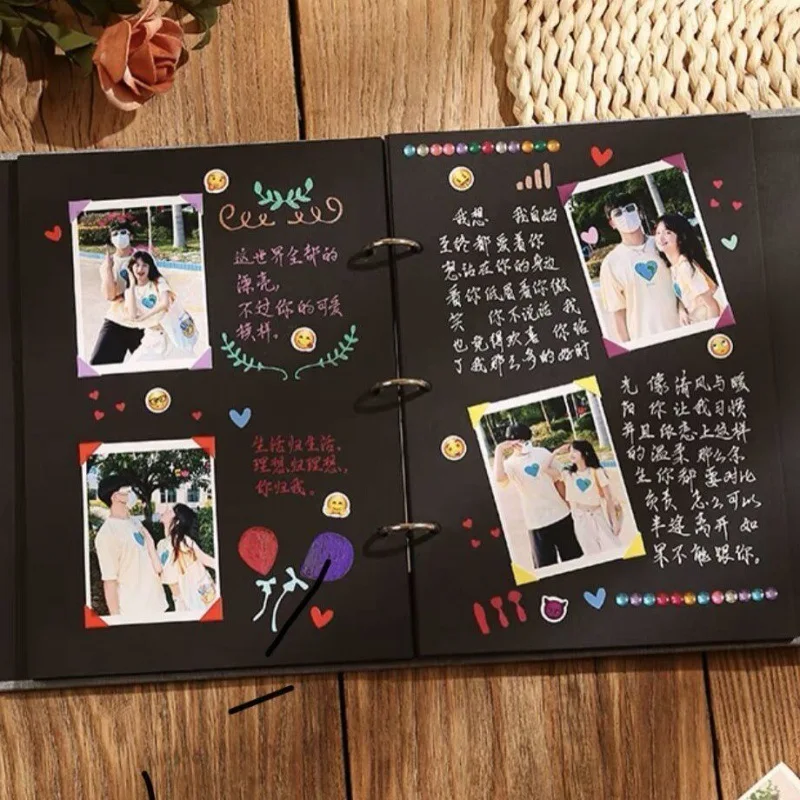 这世界全部的
漂亮,
不过你的可爱
模样。
生活归生活、
理想归理想,
你归我。
我想 我自始
至终都爱着你
想站在你的身边
看你低眉看你微
笑 你不说话 我
也觉得欢喜 你给
了我那么多的好时
光 像清风与暖
阳 你让我习惯
并且依恋上这样
的温柔 那么余
生你都要对此
负责 怎么可以
半途离开 如
果不能跟你。